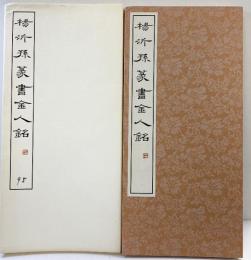 楊沂孫篆書金人銘
95
楊沂孫篆書金人銘